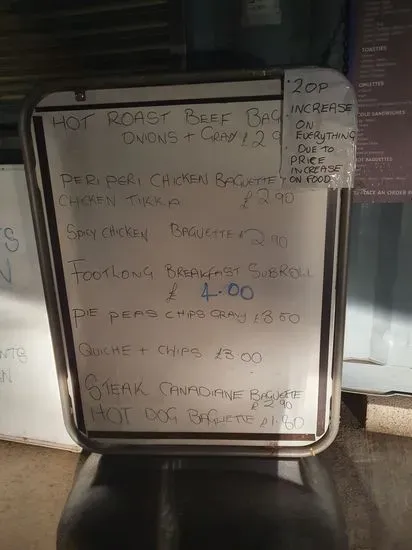 HOT ROAST BEEF BAG
ONIONS + GRAVY £2.9
20P
INCREASE
ON
EVERYTHING
DUE TO
PRICE
INCREASE
ON FOOD
PERI PERI CHICKEN BAGUETTE +
CHICKEN TIKKA £2.90
SPICY CHICKEN BAGUETTE £2.90
FOOTLONG BREAKFAST SUBROLL
£ 4.00
PIE PEAS CHIPS GRAVY £3.50
QUICHE + CHIPS £3.00
STEAK CANADIANE BAGUETTE
£2.90
HOT DOG BAGUETTE £1.80
TOASTIES
OMELETTES
COLD SANDWICHES
HOT BAGUETTES